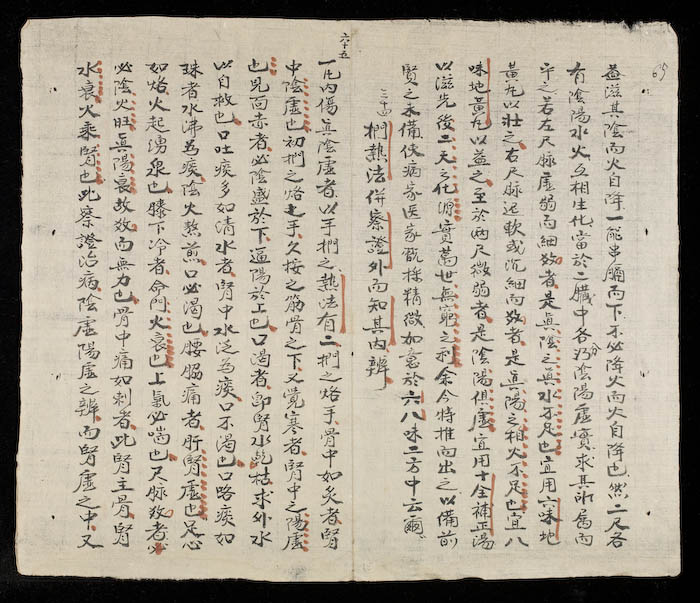 65
益滋其陰而火自降一能串膈而下不必降火而火自降也然二尺各
有陰陽水火互相生化當於二臟中各分陰陽虛實求其所属而
平之若左尺脉虛弱而細数者是眞陰之眞水不足也宜用六味地
黃丸以壮之右尺脉迟軟或沉細而数者是眞陽之相火不足也宜八
味地黃丸以益之至於两尺微弱者是陰陽俱虛宜用十全補正湯
以滋先後二天之化源實萬世無窮之利余今特推而出之以備前
賢之未備使病家医家既採精微加意於六八味二方中云爾
三十四 捫熱法併察證外而知其内辨
六十五
一凡内傷眞陰虛者以手捫之熱法有二捫之烙手骨中如炙者腎
中陰虛也初捫之烙手久按之筋骨之下又覺寒者腎中之陽虛
也見面赤者必陰盛於下逼陽於上也口渴者卽腎水乾枯求外水
以自救也口吐痰多如清水者腎中水泛為痰口不渴也口咯痰如
珠者水沸為痰陰火熬煎口必渴也腰脇痛者肝腎虛也足心
如烙火起湧泉也膝下冷者命門火衰也上氣必喘也尺脉数者
必陰火旺眞陽衰故数而無力也骨中痛如刺者此腎主骨腎
水衰火乘腎也此察證治病陰虛陽虛之辨而腎虛之中又